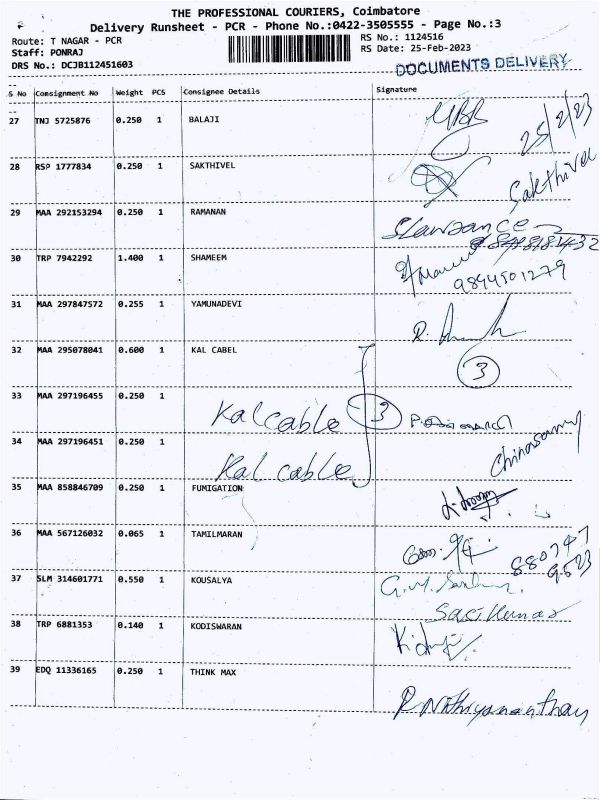 THE PROFESSIONAL COURIERS, Coimbatore
Delivery Runsheet - PCR - Phone No.:0422-3505555 - Page No.:3
Route: T NAGAR - PCR
RS No.: 1124516
Staff: PONRAJ
RS Date: 25-Feb-2023
DRS No.: DCJB112451603
DOCUMENTS DELIVERY
S No Consignment No Weight PCS Consignee Details Signature
27 TNJ 5725876 0.250 1 BALAJI
25/2/23
28 RSP 1777834 0.250 1 SAKTHIVEL
Sakthivel
29 MAA 292153294 0.250 1 RAMANAN
30 TRP 7942292 1.400 1 SHAMEEM
9894501279
31 MAA 297847572 0.255 1 YAMUNADEVI
32 MAA 295078041 0.600 1 KAL CABEL
3
33 MAA 297196455 0.250 1
Kal cable 3
34 MAA 297196451 0.250 1
Kal cable
Chinnasamy
35 MAA 858846709 0.250 1 FUMIGATION
36 MAA 567126032 0.065 1 TAMILMARAN
880747
9523
37 SLM 314601771 0.550 1 KOUSALYA
Sasikumar
38 TRP 6881353 0.140 1 KODISWARAN
39 EDQ 11336165 0.250 1 THINK MAX
R Nithiyananthan